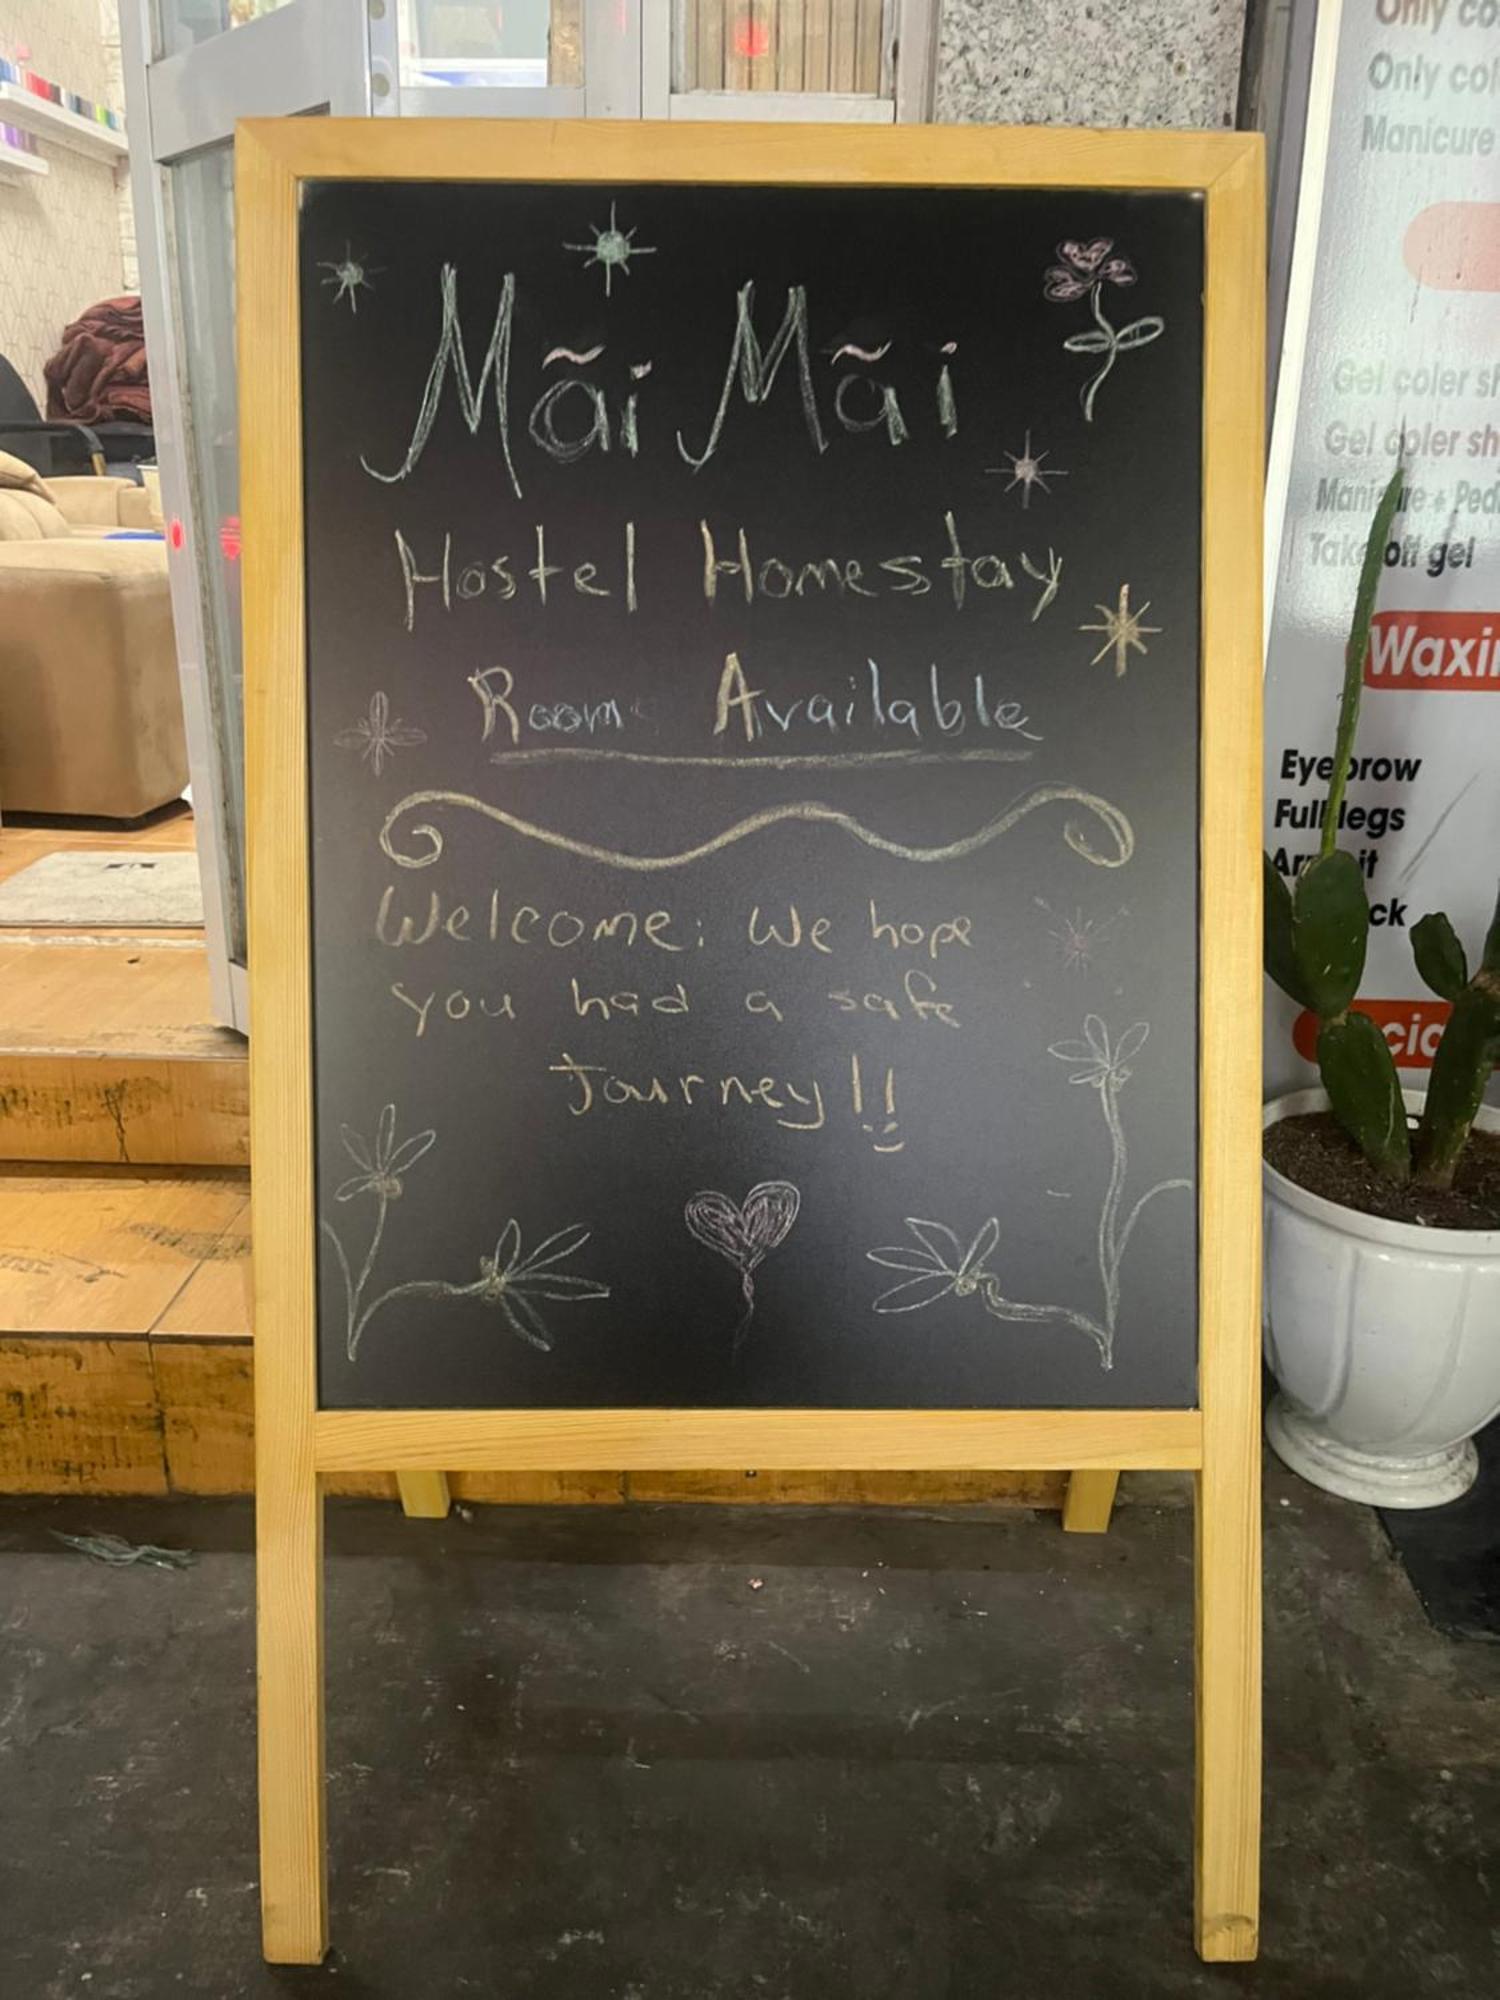 Mãi Mãi
Hostel Homestay
Room Available
Welcome: We hope
you had a safe
Journey!!
Only
Only
Manicure
Gel coler
Gel coler
Manicure +
Take off gel
Eyebrow
Full legs